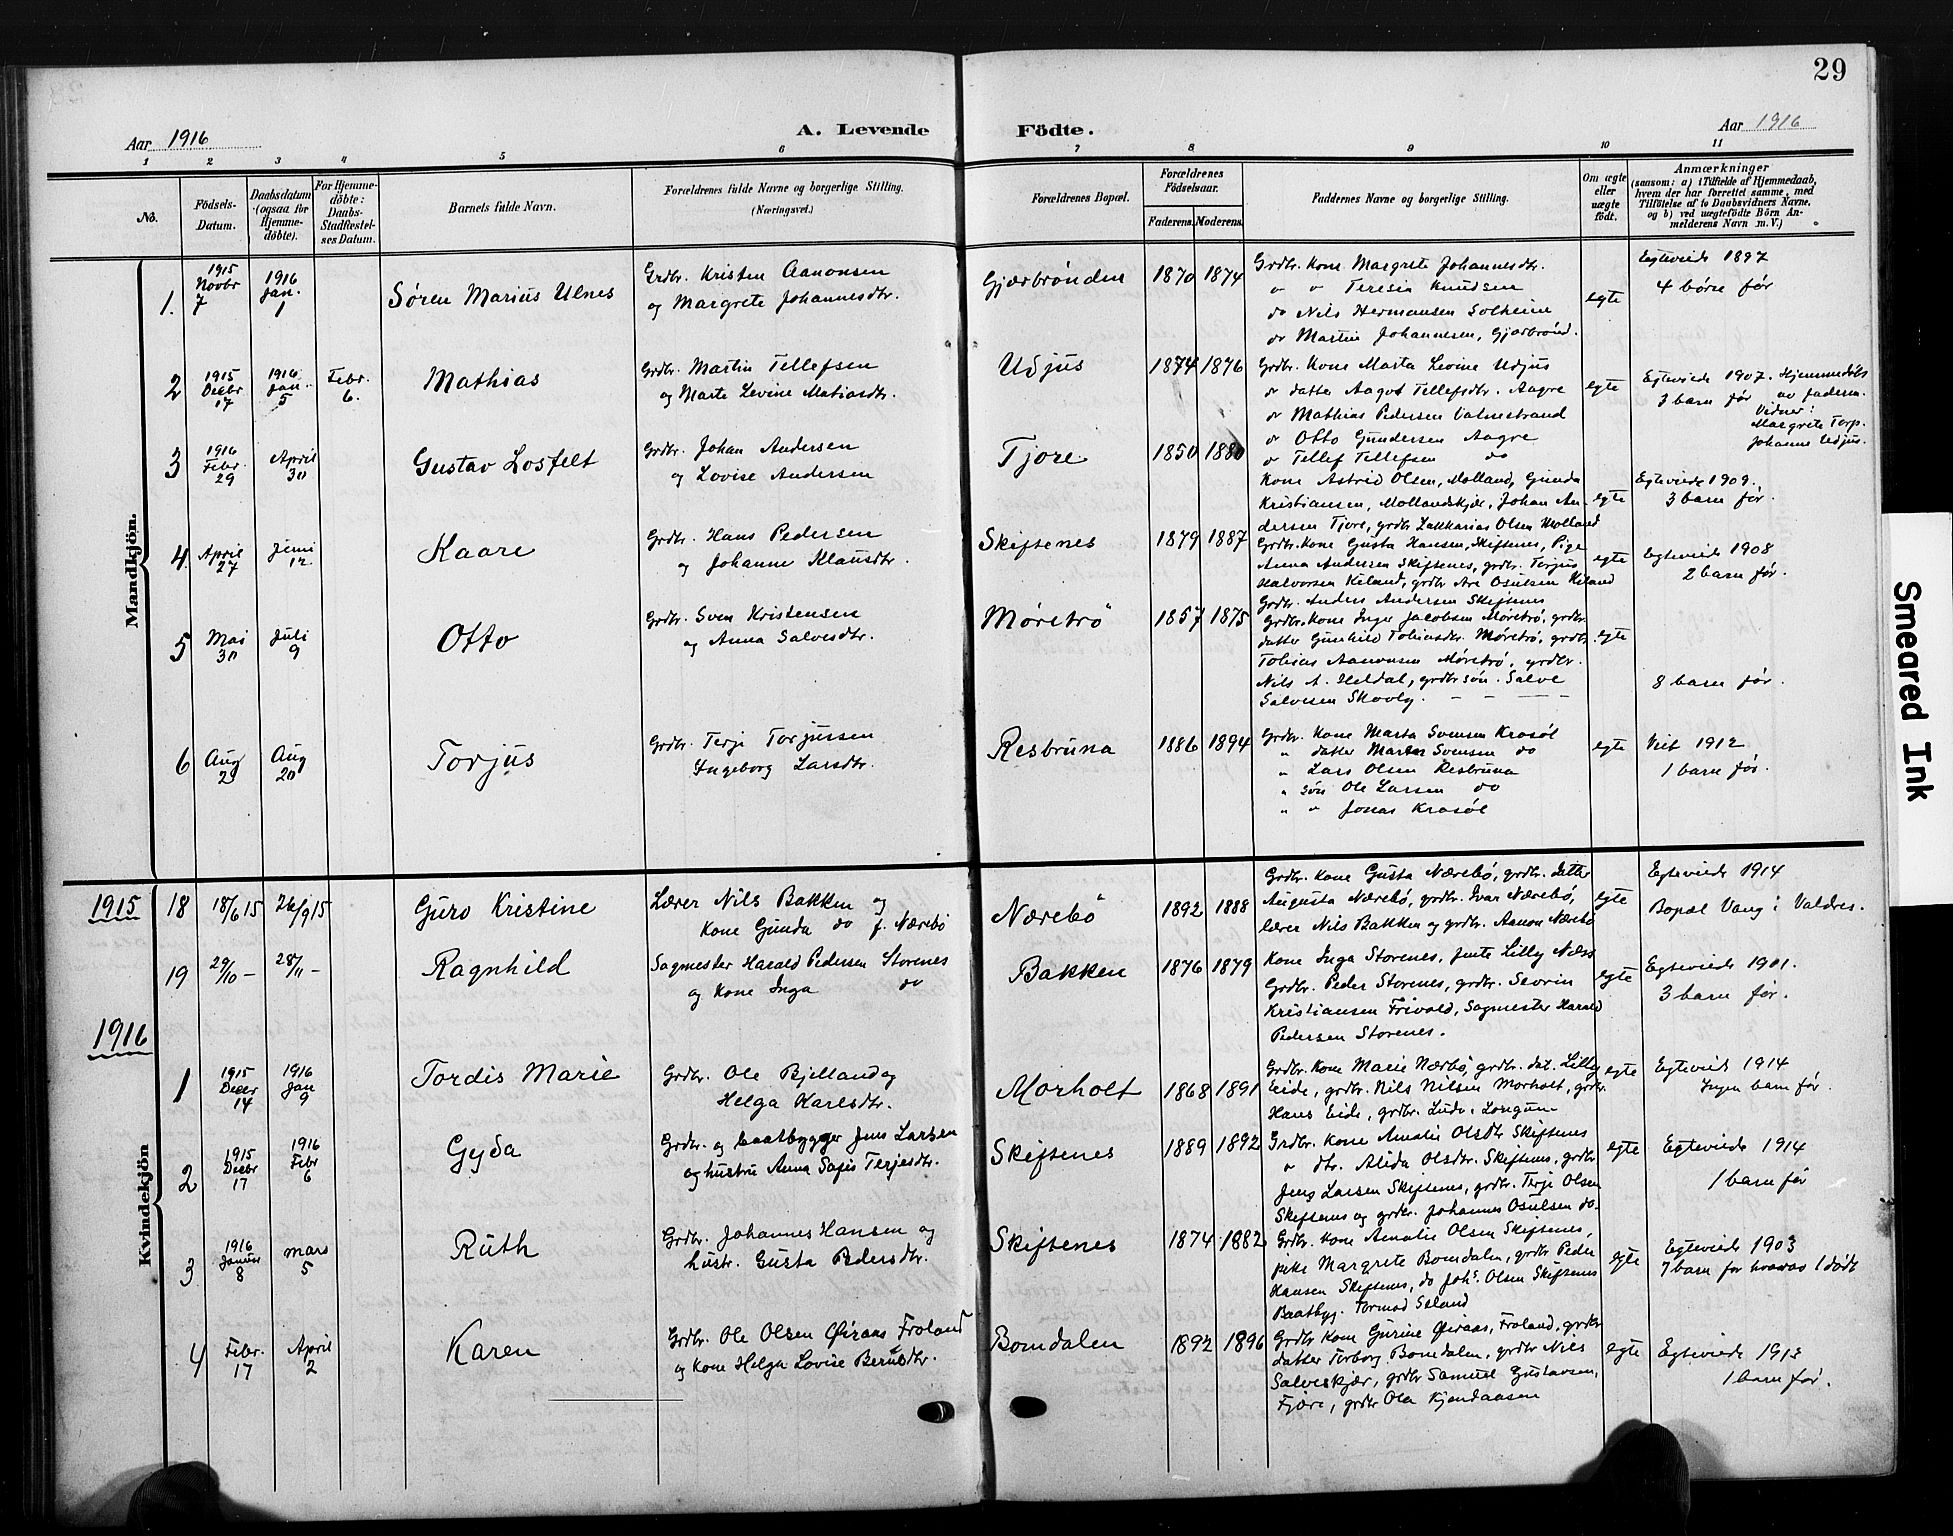 29
Aar 1916
A. Levende Födte.
Aar 1916
1 2 3 4 5 6 7 8 9 10 11
No.
Födsels-Datum.
Daabsdatum (ogsaa for Hjemme-döbte).
For Hjemme-döbte: Daabs-Stadfæstel-ses Datum.
Barnets fulde Navn.
Forældrenes fulde Navne og borgerlige Stilling. (Næringsvei.)
Forældrenes Bopæl.
Forældrenes Födselsaar.
Faderens. Moderens.
Faddernes Navne og borgerlige Stilling.
Om ægte eller uægte födt.
Anmærkninger
(saasom: a) i Tilfælde af Hjemmedaab,
hvem der har forrettet samme, med
Tilföielse af to Daabsvidners Navne,
og b) ved uægtefödte Börn An-
melderens Navn m. V.)
Mandkjön.
1. 1915 Novbr 7
1916 Jan. 1
Søren Marius Ulnes
Grdbr. Kristen Aanonsen
og Margrete Johannesdtr.
Gjærbrønden
1870 1874
Grdbr. Kone Margrete Johannesdtr.
" " Teresia Knudsen
do Nils Hermansen Solheim
do Martin Johannesen, Gjærbrønd.
egte
Egteviede 1897
4 børn før
2 1915 Decbr 17
1916 Jan. 5
Febr. 6.
Mathias
Grdbr. Martin Tellefsen
og Marte Levine Matiasdtr.
Udjus
1874 1876
Grdbr. Kone Marta Levine Udjus
" datter Aagot Tellefsdtr. Aagre
" Mathias Pedersen Valmestrand
" Otto Gundersen Aagre
" Tellef Tellefsen do
egte
Egteviede 1907. Hjemmedøbt
3 barn før av faderen.
Vidner:
Margrete Torp.
Johanne Udjus.
3 1916 Febr. 29
April 30
Gustav Losfelt
Grdbr. Johan Andersen
og Lovise Andersen
Tjore
1850 1880
Kone Astrid Olsen, Molland, Gunda
Kristiansen, Mollandskjær, Johan An-
dersen Tjore, grdbr Zakkarias Olsen Molland
egte
Egteviede 1909.
3 barn før.
4 April 27
Juni 12
Kaare
Grdbr. Hans Pedersen
og Johanne Klausdtr.
Skiftenes
1879 1887
Grdbr. Kone Gusta Hansen, Skiftenes, Pige
Anna Andersen Skiftenes, grdbr. Terjus
Halvorsen Kiland, grdbr Are Osulsen Kiland
Grdbr. Anders Andersen Skiftenes
egte
Egteviede 1908
2 barn før.
5 Mai 30
Juli 9
Otto
Grdbr. Sven Kristensen
og Anna Salvesdtr.
Møretrø
1857 1875
Grdbr. Kone Inger Jacobsen Møretrø, grdbr.
datter Gunhild Tobiasdtr. Møretrø, grdbr.
Tobias Aanonsen Møretrø, grdbr.
Nils A. Heldal, grdbr søn. Salve
Salvesen Skovly. - - -
egte
8 barn før.
6 Aug 23
Aug 20
Torjus
Grdbr. Terje Torjussen
Ingeborg Larsdtr.
Resbruna
1886 1894
Grdbr. Kone Marta Svensen Krosøl
" datter Marta Svensen do
" Lars Olsen Resbruna
" søn Ole Larsen do
" " Jonas Krosøl
egte
Viet 1912
1 barn før.
Kvindekjön
1915
18 18/6 15
26/9 15
Guro Kristine
Lærer Nils Bakken og
Kone Gunda do f. Nærebø
Nærebø
1892 1888
Grdbr. Kone Gusta Nærebø, grdbr. datter
Augusta Nærebø, grdbr. Ivar Nærebø,
lærer Nils Bakken og grdbr. Aanon Nærebø
egte
Egteviede 1914
Bopæl Vang i Valdres.
19 29/10 -
28/11 -
Ragnhild
Sagmester Harald Pedersen Storenes
og Kone Inga do
Bakken
1876 1879
Kone Inga Storenes, jente Lilly Næss
Grdbr. Peder Storenes, grdbr. Severin
Kristiansen Frivold, Sagmester Harald
Pedersen Storenes.
egte
Egteviede 1901.
3 barn før.
1916
1 1915 Decbr 14
1916 Jan 9
Tordis Marie
Grdbr. Ole Bjelland og
Helga Karlsdtr.
Morholt
1868 1891
Grdbr. Kone Marie Nærbø, grdbr. dat. Lilly
Eide, grdbr. Nils Nilsen Morholt, grdbr.
Hans Eide, grdbr. Ludv. Longum
egte
Egteviede 1914
Ingen barn før.
2 1915 Decbr 17
1916 Febr 6
Gyda
Grdbr. og baatbygger Jens Larsen
og hustru Anna Sofie Terjesdtr.
Skiftenes
1889 1892
Grdbr. Kone Amalie Olsdtr Skiftenes
" dtr. Alida Olsdtr. Skiftenes, grdbr
Jens Larsen Skiftenes, grdbr. Terje Olsen
Skiftenes og grdbr. Johannes Osulsen do.
egte
Egteviede 1914
1 barn før
3 1916 Januar 8
mars 5
Ruth
Grdbr. Johannes Hansen og
hustr. Gusta Pedersdtr.
Skiftenes
1874 1882
Grdbr. Kone Amalie Olsen Skiftenes,
pike Margrete Bomdalen, grdbr Peder
Hansen Skiftenes, do Johs. Olsen Skiftenes
Baatbyg. Tormod Seland
egte
Egteviede 1903
7 barn før hvorav 1 dødt
4 Febr. 17
April 2
Karen
Grdbr. Ole Olsen Øiraas Froland
og kone Helga Lovise Berntsdtr.
Bomdalen
1892 1896
Grdbr Kone Gurine Øiraas, Froland, grdbr
datter Torborg Bomdalen, grdbr Nils
Salveskjær, grdbr Samuel Gustavsen,
Fjære, grdbr Ola Kjendaasen
egte
Egteviede 1913
1 barn før.
Smeared Ink